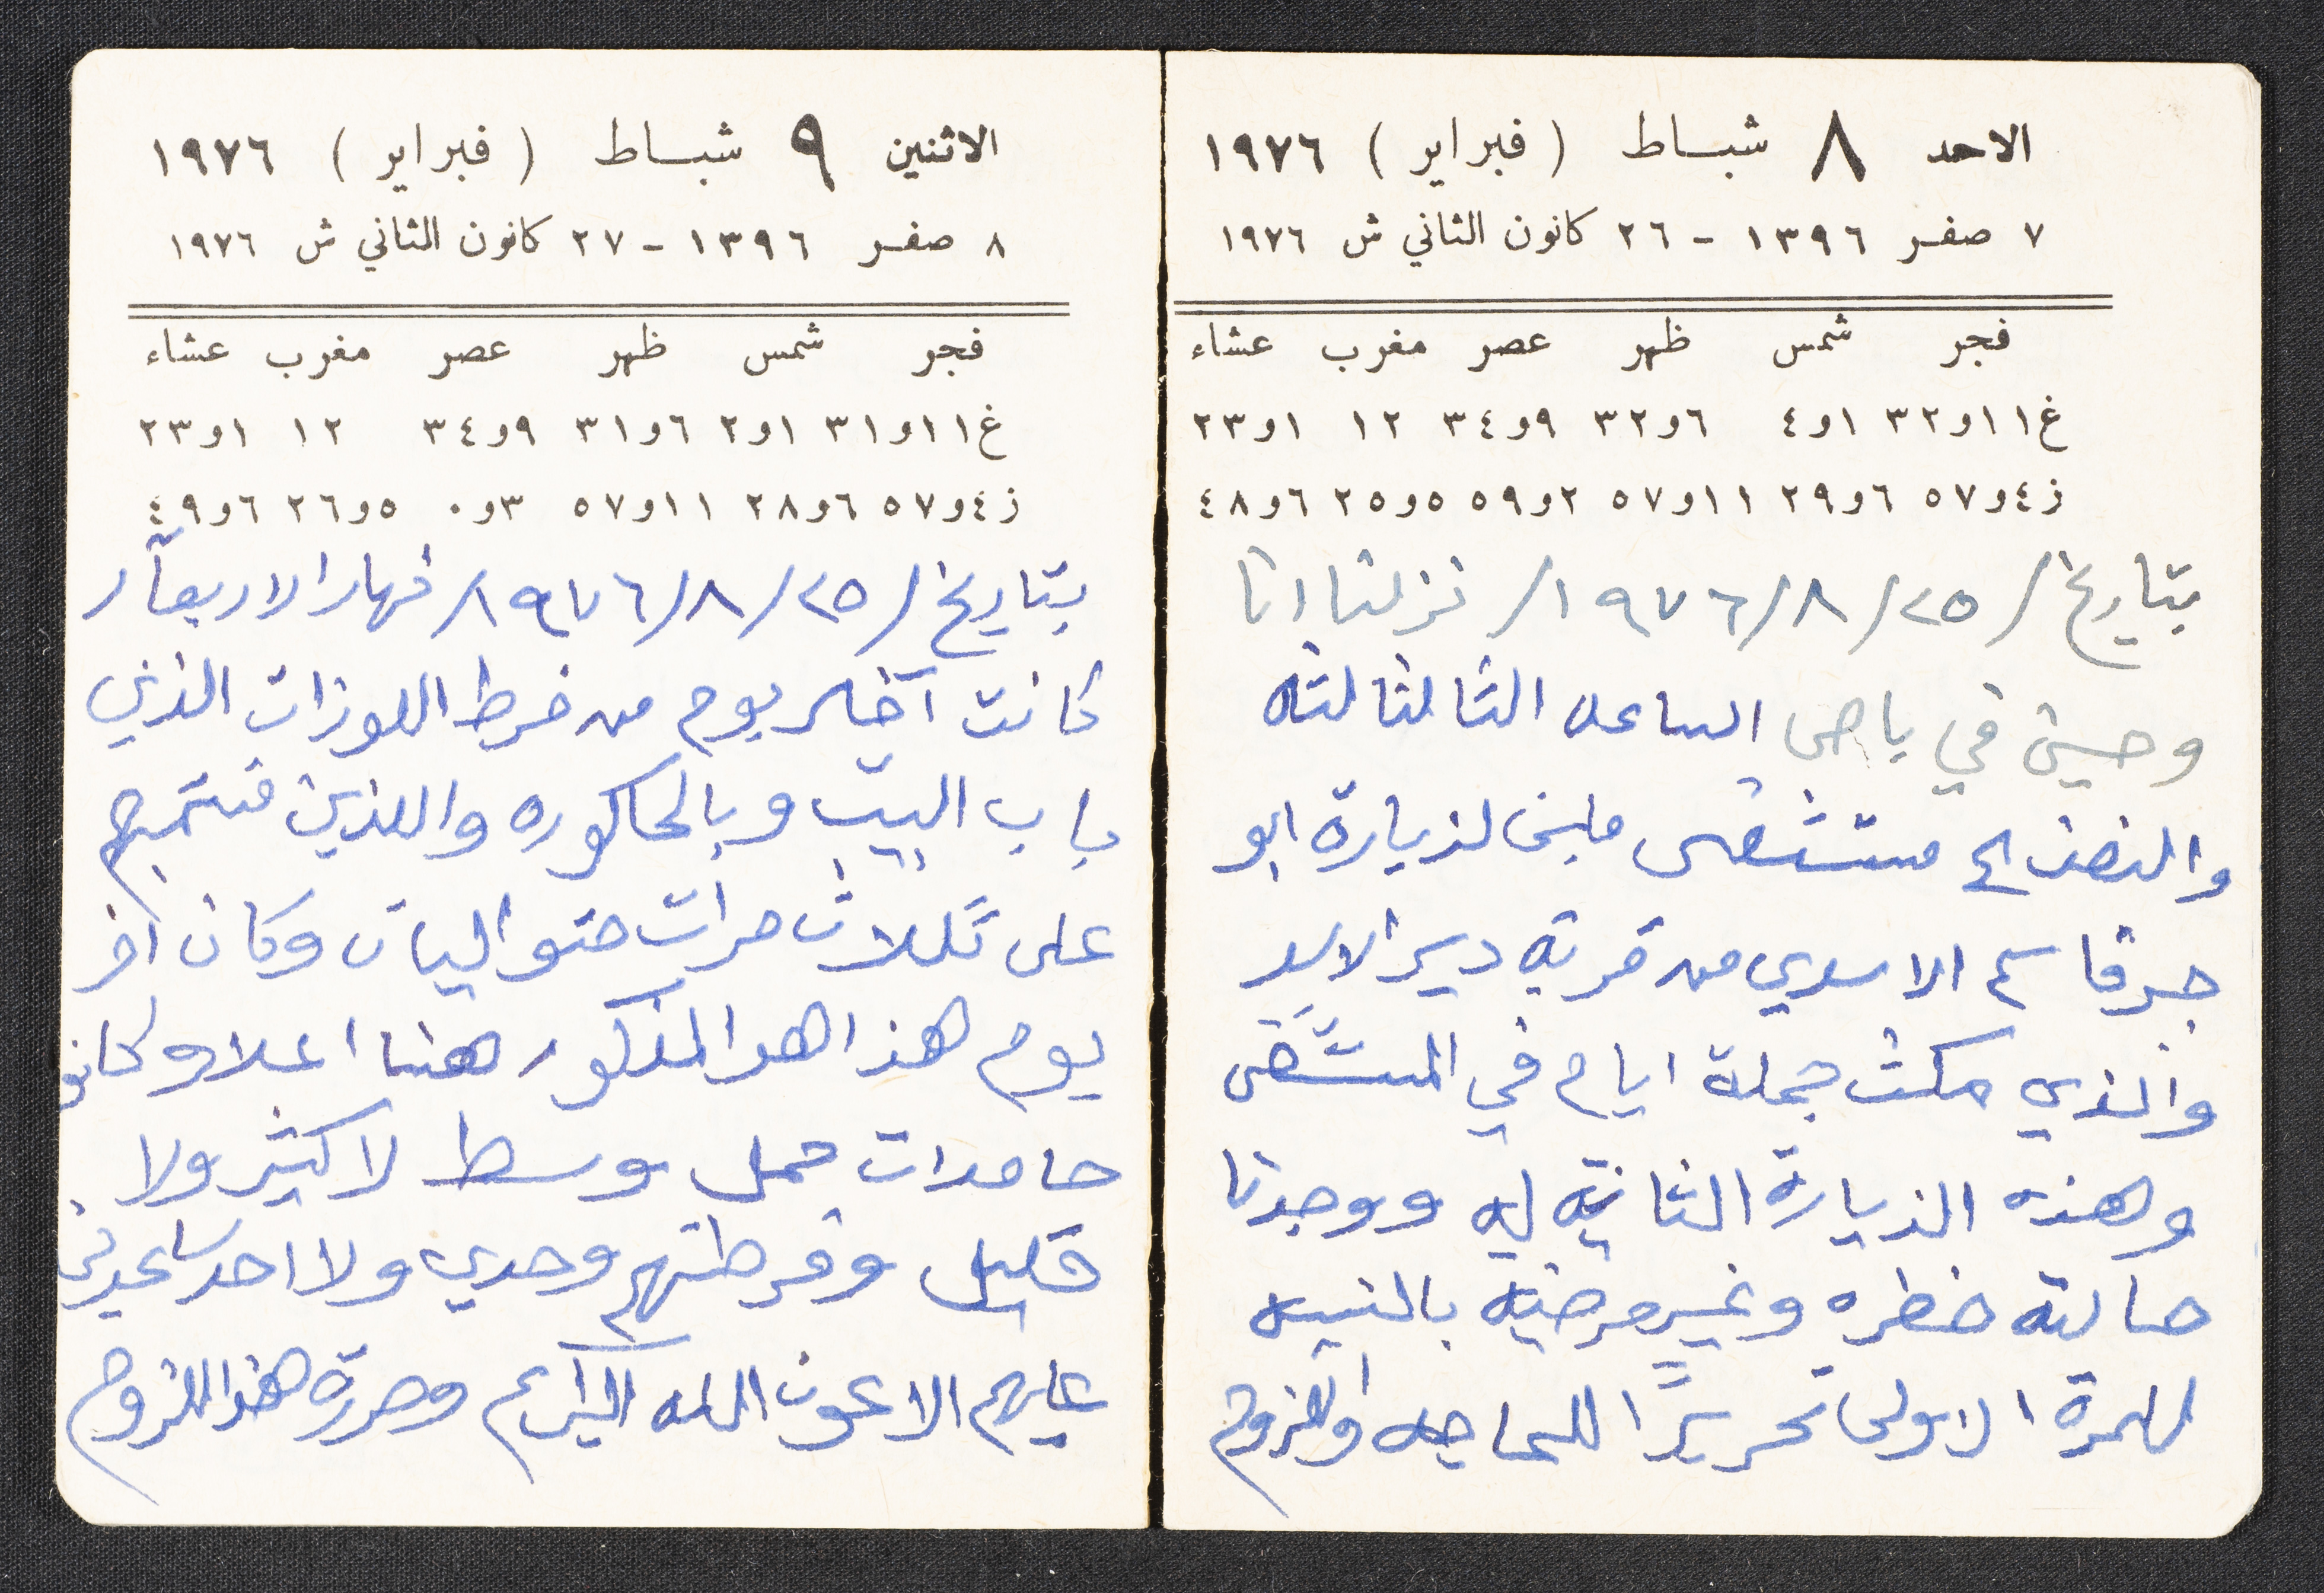 الاحد ٨ شباط ( فبراير ) ١٩٧٦
٧ صفر ١٣٩٦ - ٢٦ كانون الثاني ش ١٩٧٦
فجر شمس ظهر عصر مغرب عشاء
غ ١١و٣٢ ١و٤ ٦و٣٢ ٩و٣٤ ١٢ ١و٢٣
ز ٤و٥٧ ٦و٢٩ ١١و٥٧ ٢و٥٩ ٥و٢٥ ٦و٤٨
بتاريخ /٢٥/٨/١٩٧٦/ نزلنا انا
وحسين في باص الساعه الثالثالثه
والنصف الى مستشفى لزيارة ابو
قاسم الاسدي من قرية دير الاسد
والذي مكث جملة ايام في المستشفى
وهذه الزيارة الثانيه له ووجدنا
حالته خطره وغير مرضيه بالنسبه
للمرة الاولى تحريرًا للحاجه واللزوم
الاثنين ٩ شباط ( فبراير ) ١٩٧٦
٨ صفر ١٣٩٦ - ٢٧ كانون الثاني ش ١٩٧٦
فجر شمس ظهر عصر مغرب عشاء
غ ١١و٣١ ١و٢ ٦و٣١ ٩و٣٤ ١٢ ١و٢٣
ز ٤و٥٧ ٦و٢٨ ١١و٥٧ ٣و٠ ٥و٢٦ ٦و٤٩
بتاريخ /٢٥/٨/١٩٧٦/ نهار الاربعآء
كانت آخر يوم من فرط اللوزات الذي
باب البيت وبالحاكوره واللذين
على تللاث مرات متواليات وكان اخر
يوم هذا هو المذكور هنا اعلاه وكانو
حامدات حمل وسط لا كثير ولا
قليل وفرطتهم وحدي ولا احد ساعدني
عليهم الا عون الله الكريم وحرره هذا للزوم